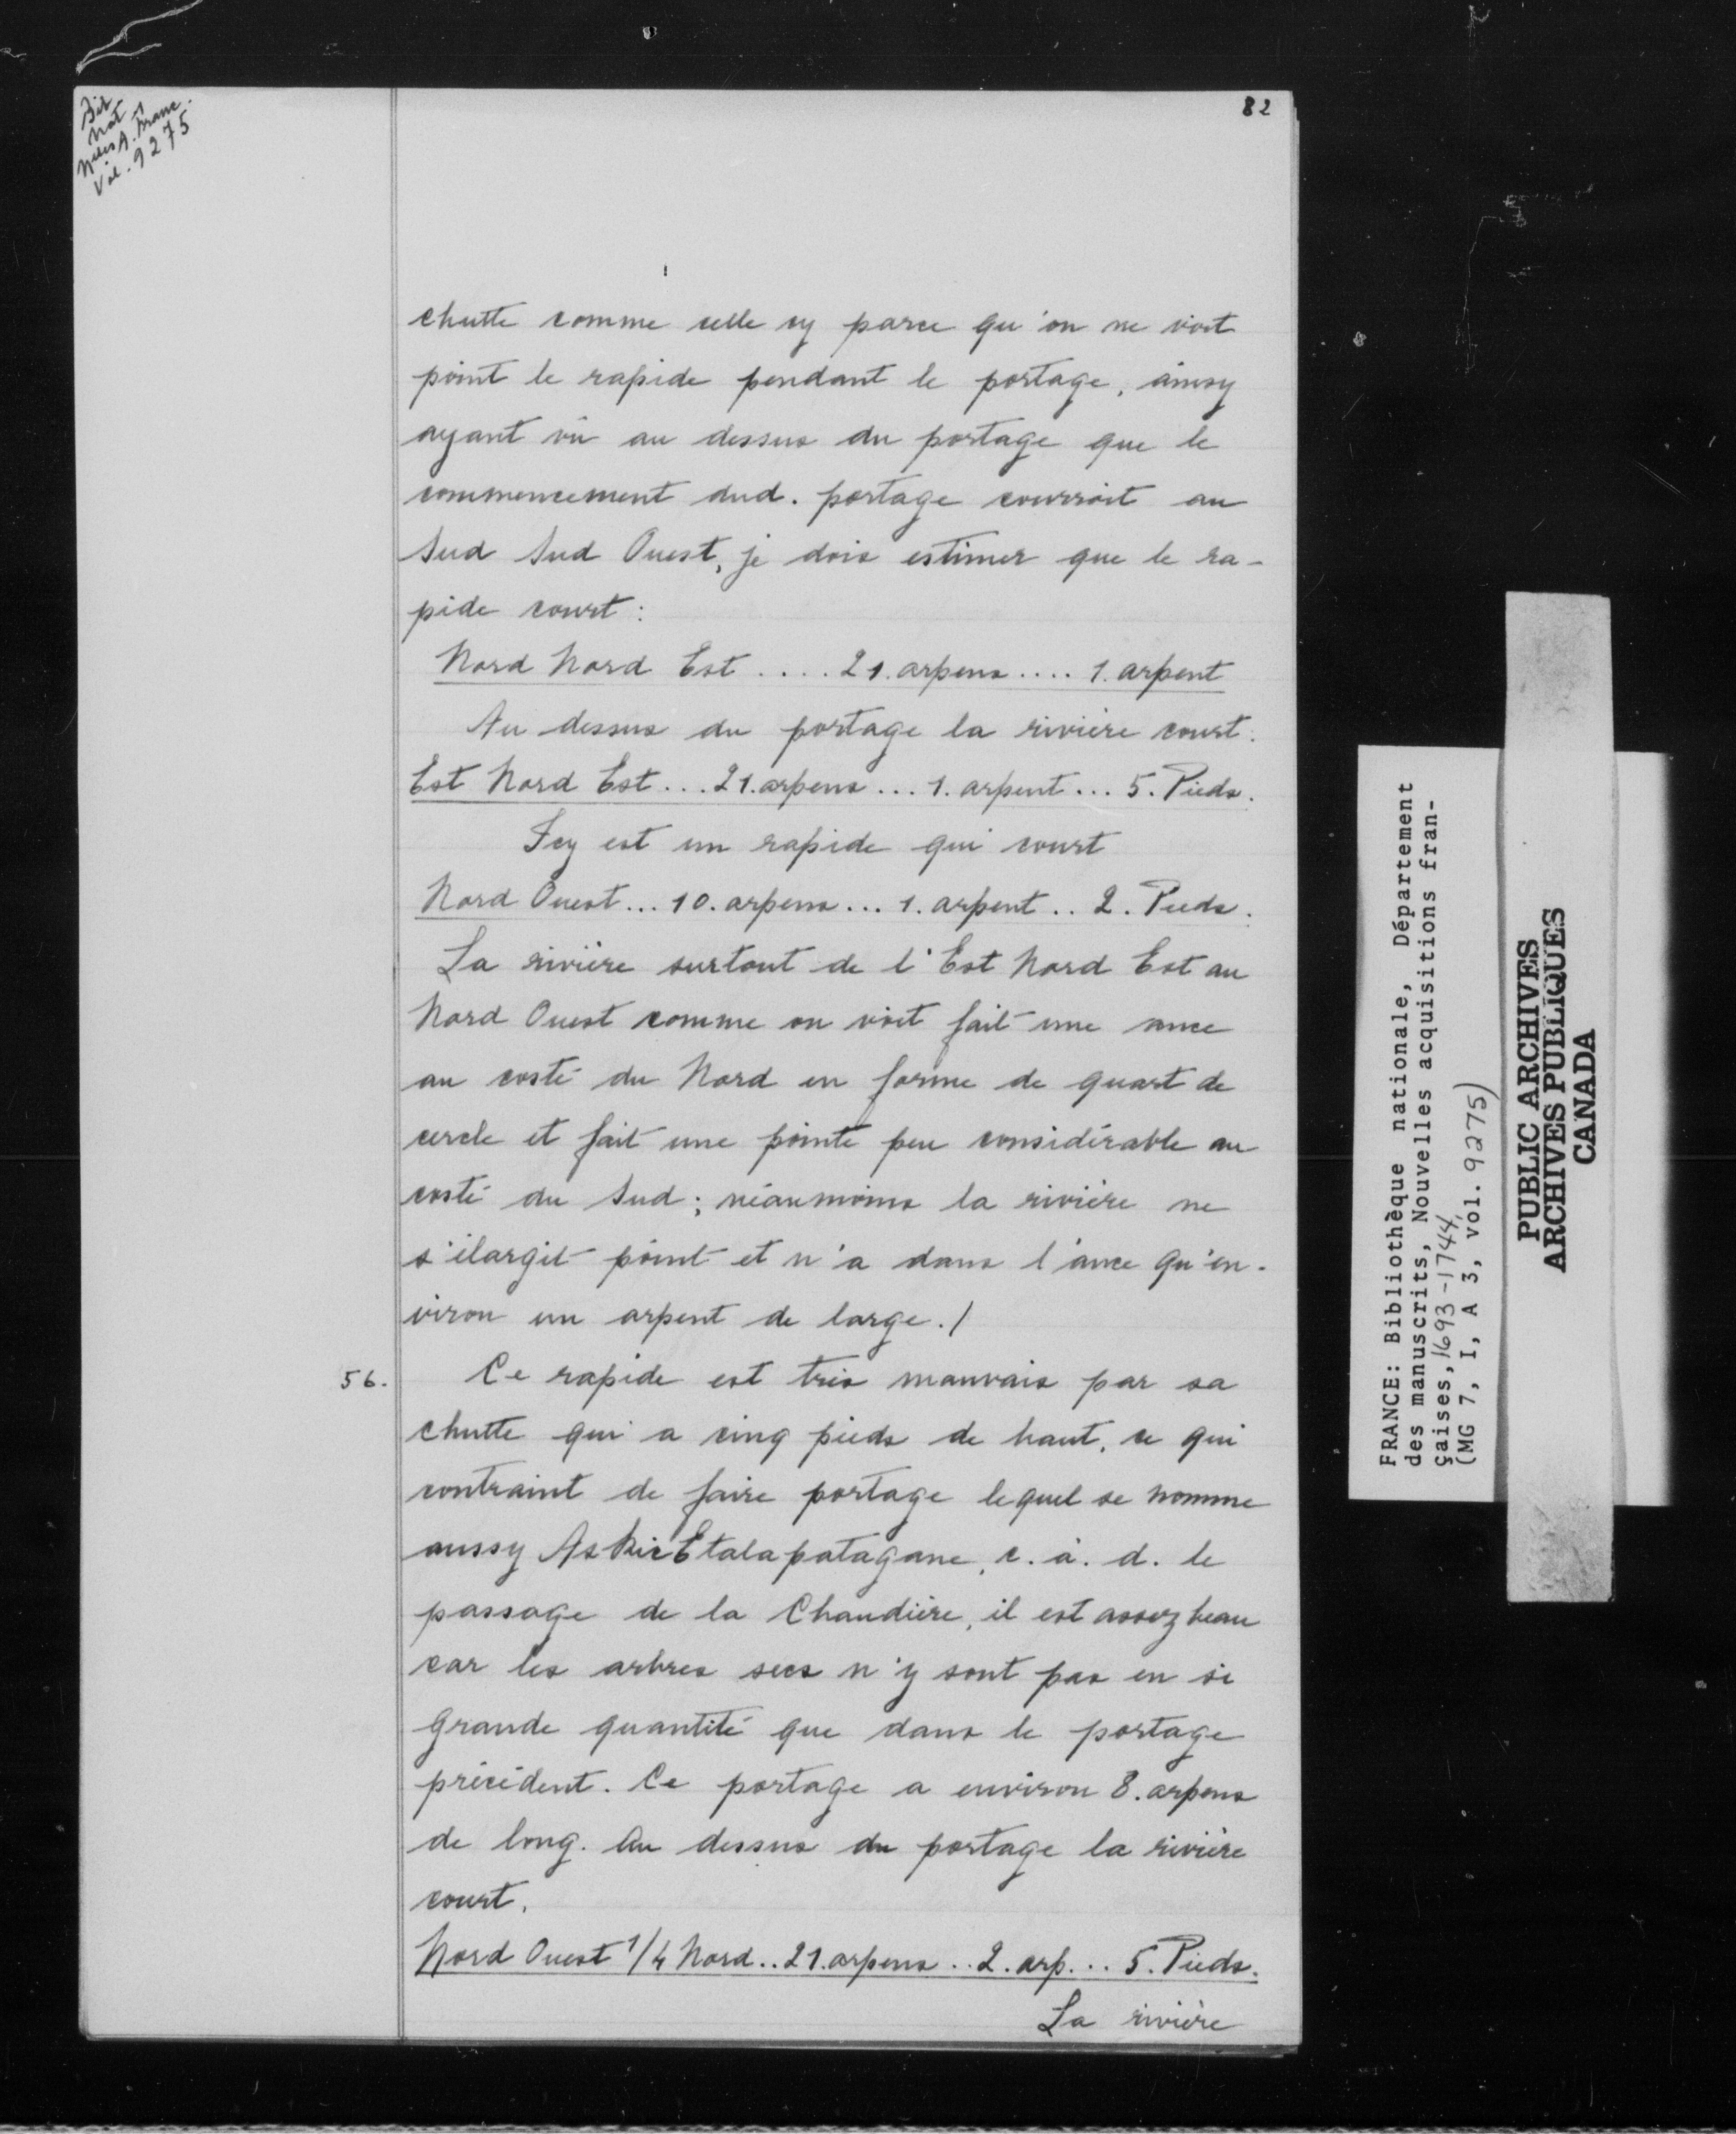 82
Bib
Nat
Mss N. A. Franc.
Vol. 9275
chutte comme celle cy parce qu'on ne voit
point le rapide pendant le portage, ainsy
ayant vû au dessus du portage que le
commencement dud. portage courroit au
Sud Sud Ouest, je dois estimer que le ra-
pide court:
Nord Nord Est .... 21. arpens .... 1. arpent
Au dessus du portage la rivière court.
Est Nord Est ... 21. arpens ... 1. arpent ... 5. Pieds.
Icy est un rapide qui court
Nord Ouest ... 10. arpens ... 1. arpent .. 2. Pieds.
La rivière surtout de l'Est Nord Est au
Nord Ouest comme on voit fait une ance
au costé du Nord en forme de quart de
cercle et fait une pointe peu considérable au
costé du Sud; néanmoins la rivière ne
s'élargit point et n'a dans l'ance qu'en-
viron un arpent de large./
56. Ce rapide est très mauvais par sa
chutte qui a cinq pieds de haut, ce qui
contraint de faire portage lequel se nomme
aussy AskicEtalapatagane, c. à. d. le
passage de la Chaudière, il est assez beau
car les arbres secs n'y sont pas en si
grande quantité que dans le portage
précédent. Ce portage a environ 8. arpens
de long. Au dessus du portage la rivière
court.
Nord Ouest 1/4 Nord .. 21. arpens .. 2. arp. .. 5. Pieds.
La rivière
FRANCE: Bibliothèque nationale, Département
des manuscrits, Nouvelles acquisitions fran-
çaises, 1693-1744
(MG 7, I, A 3, vol. 9275)
PUBLIC ARCHIVES
ARCHIVES PUBLIQUES
CANADA